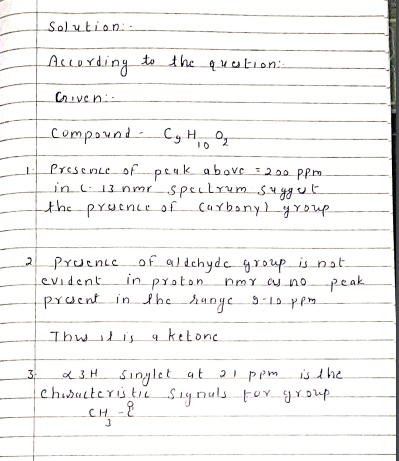 Solution:-
According to the question:-
Given:-
Compound - C9 H10 O2
1. Presence of peak above = 200 ppm
in C-13 nmr spectrum suggest
the presence of carbonyl group
2. Presence of aldehyde group is not
evident in proton nmr as no peak
present in the range 9-10 ppm
Thus it is a ketone
3. 3H singlet at 21 ppm is the
characteristic signals for group
CH3 - C
O